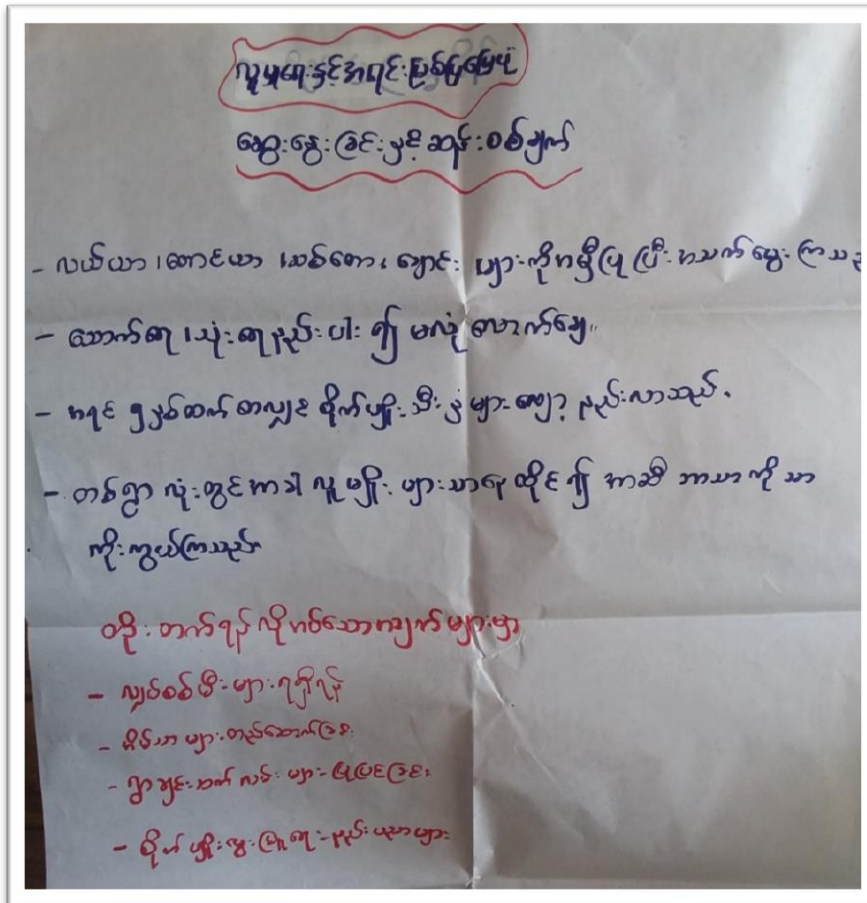 လူမှုရေးနှင့်အရင်းမြစ်ပြမြေပုံ
ဆွေးနွေးခြင်းနှင့် ဆန်းစစ်ချက်
- လယ်ယာ၊ တောင်ယာ၊ သစ်တော၊ ချောင်း များကိုအမှီပြုပြီး အသက်မွေးကြသည်
- သောက်ရေ၊ သုံးရေနည်းပါး၍ မလုံလောက်ချေ။
- အရင် ၅ နှစ်ထက်စာလျှင် စိုက်ပျိုးသီးနှံများလျော့နည်းလာသည်.
- တစ်ရွာလုံးတွင် အာခါလူမျိုးများသာနေထိုင်၍ အာခါ ဘာသာကိုသာ
ကိုးကွယ်ကြသည်
တိုးတက်ရန်လိုအပ်သောအချက်များမှာ
- လျှပ်စစ်မီးများရရှိရန်
- အိမ်သာများတည်ဆောက်ခြင်း
- ရွာချင်းဆက်လမ်းများပြုပြင်ခြင်း
- စိုက်ပျိုးမွေးမြူရေးနည်းပညာများ